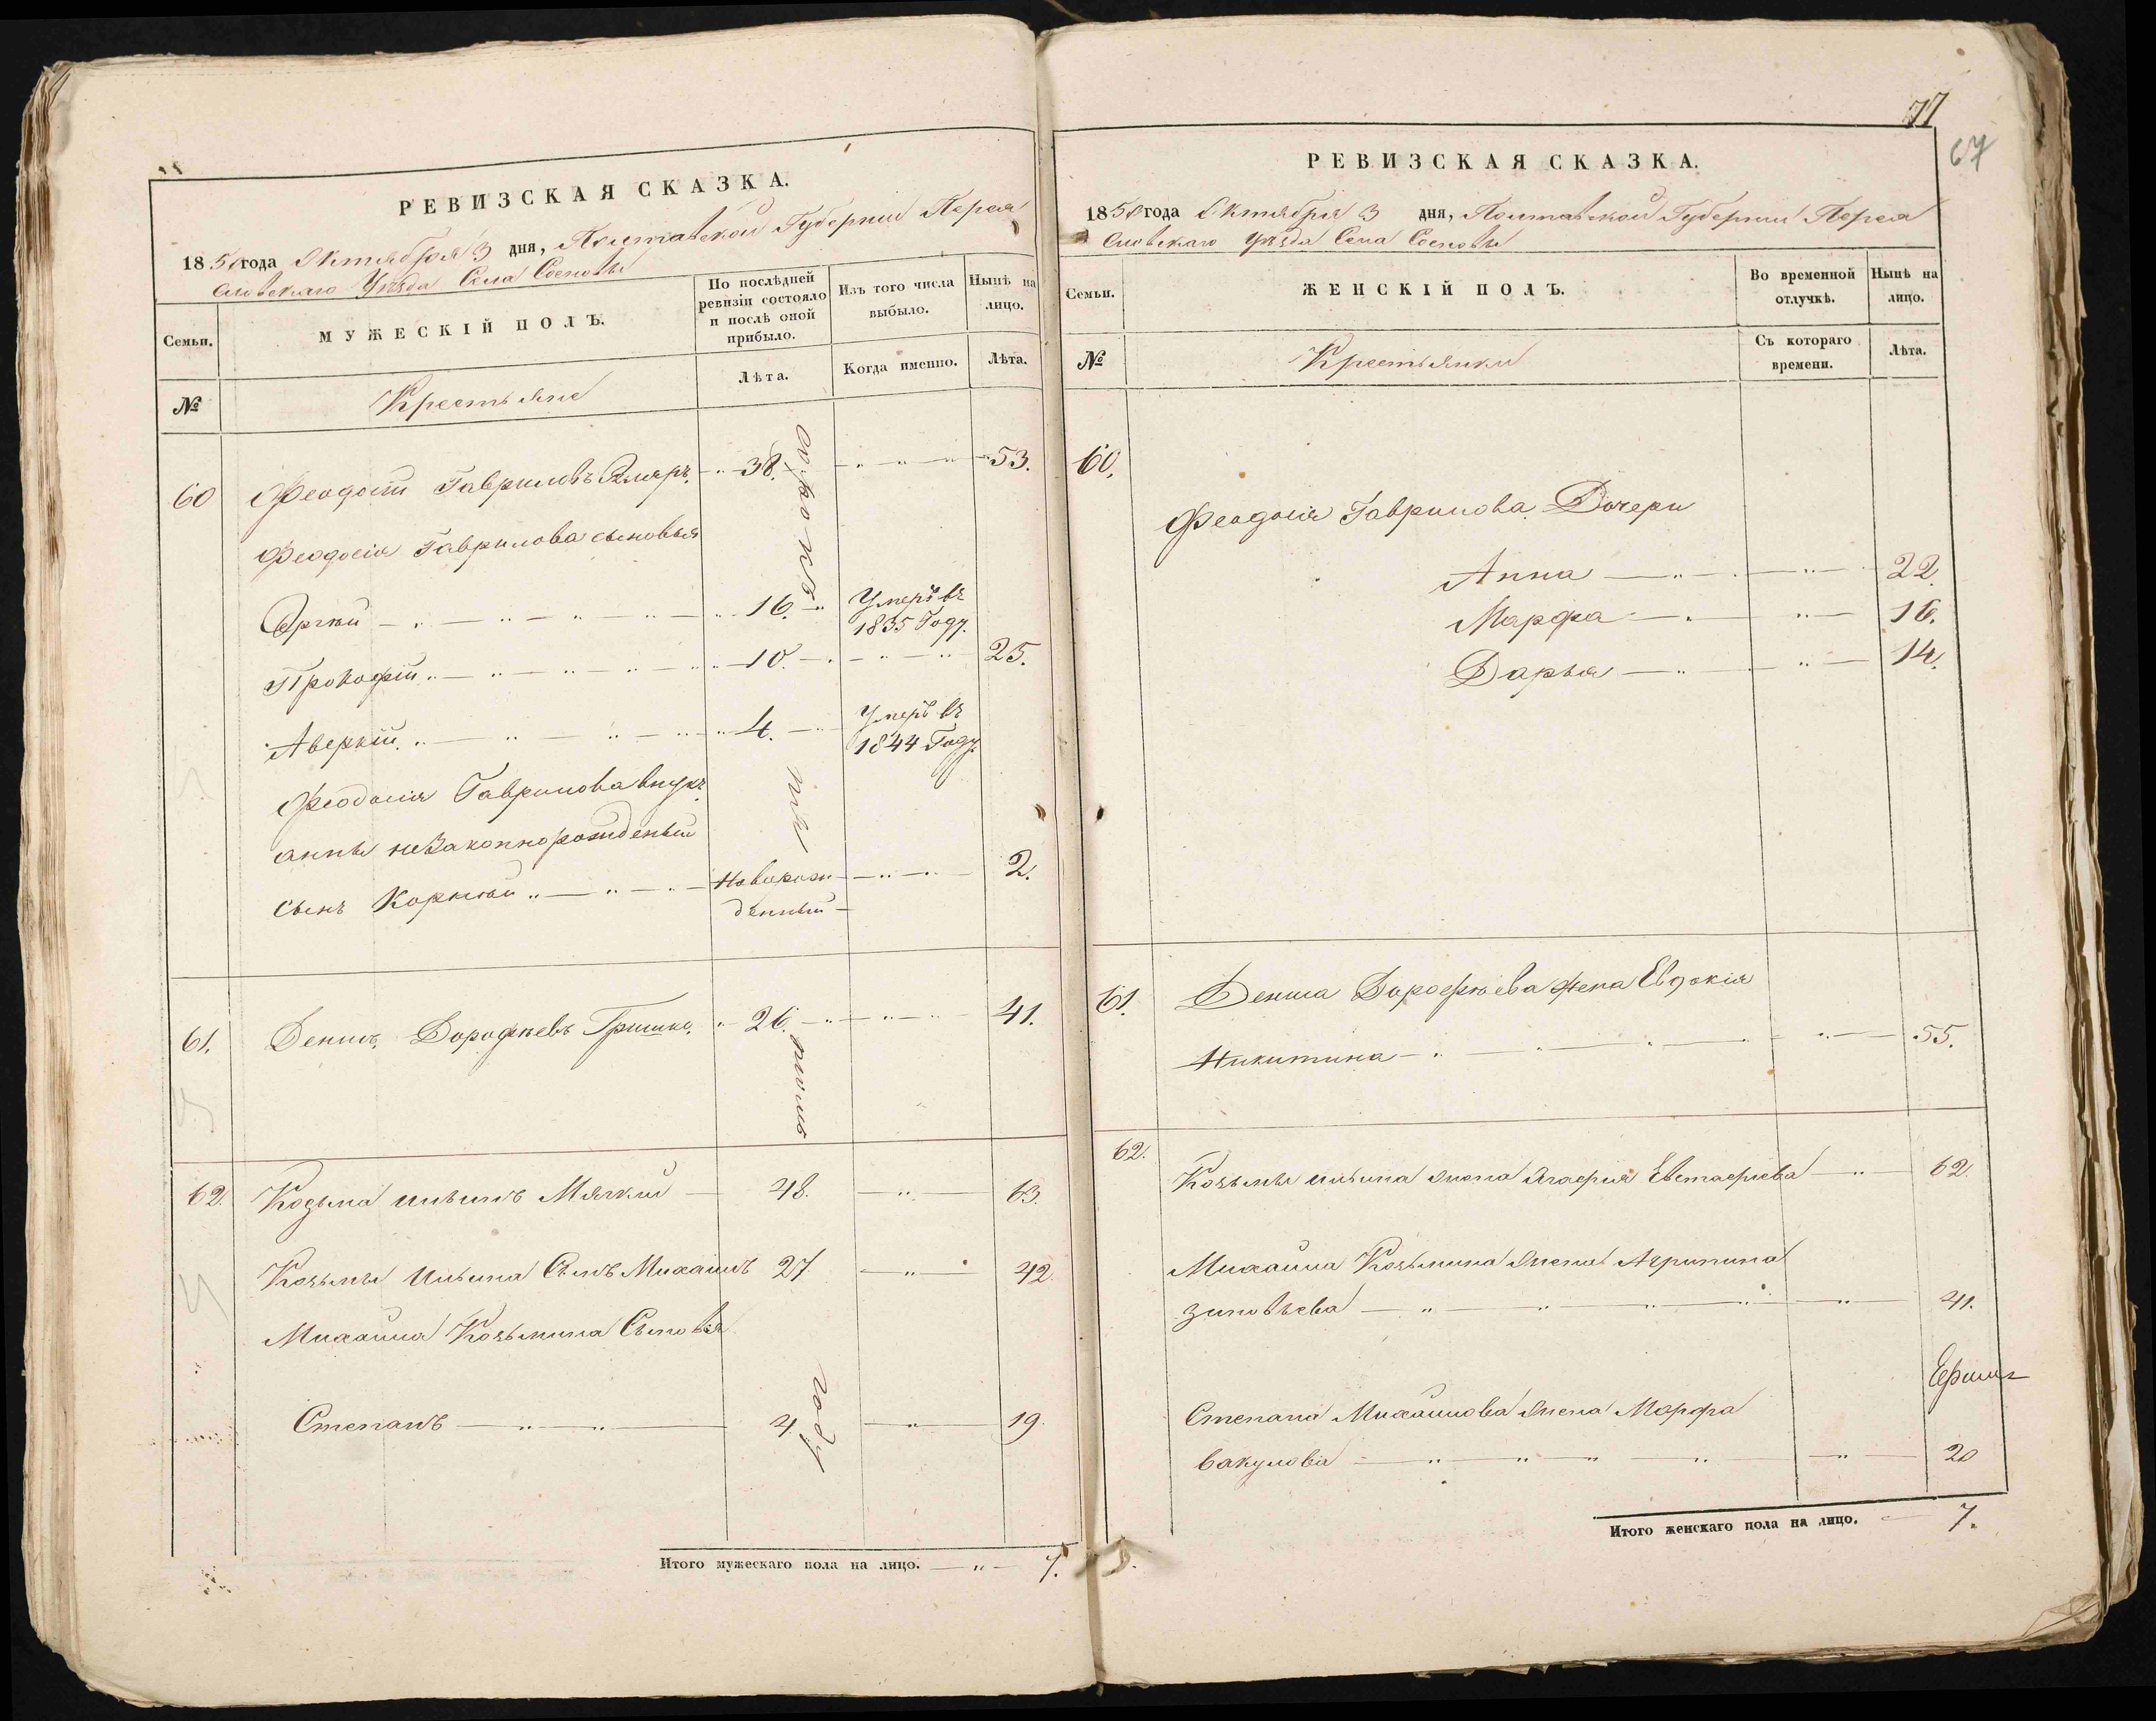 РЕВИЗСКАЯ СКАЗКА.
1850 года Октября 3 дня, Полтавской Губернии Перея
славскаго Уѣзда Села Сосновы
Семьи.
МУЖЕСКІЙ ПОЛЪ.
По послѣдней
ревизіи состояло
и послѣ оной
прибыло.
Изъ того числа
выбыло.
Нынѣ на
лицо.
№
Крестьяне
Лѣта.
Когда именно.
Лѣта.
60 Феодосій Гавриловъ 38. 53.
Феодосія Гаврилова сыновья
16. Умеръ въ
1835 Году.
Прокофій 10. 25.
Аверкій 4. Умеръ въ
1844 Году.
Феодосія Гаврилова внукъ
анны незаконнорожденный
сынъ Корнѣй Новорож 2.
денный
61. Денисъ Дорофѣевъ Гришко. 26. 41.
62. Козьма Ильинъ Мягкій 48. 63.
Козьмы Ильина Сынъ Михаилъ 27 42.
Михаила Козьмина Сыновья
Степанъ 4 19.
году
Итого мужескаго пола на лицо. 7.
77
67
РЕВИЗСКАЯ СКАЗКА.
1850 года Октября 3 дня, Полтавской Губерніи Перея
славскаго Уѣзда Села Сосновы
Семьи.
ЖЕНСКІЙ ПОЛЪ.
Во временной
отлучкѣ.
Нынѣ на
лицо.
№
Крестьянки
Съ котораго
времени.
Лѣта.
60.
Феодосія Гаврилова Дочери
Анна 22.
Марфа 16.
Дарья 14.
61. Дениса Дорофѣева жена Евдокія
Никитина 55.
62.
Козьмы Ильина жена Агафія Евстафіева 62.
Михаила Козьмина жена Агрипина
зиновьева 41.
Степана Михайлова жена Марфа
вакулова 20
Итого женскаго пола на лицо. 7.